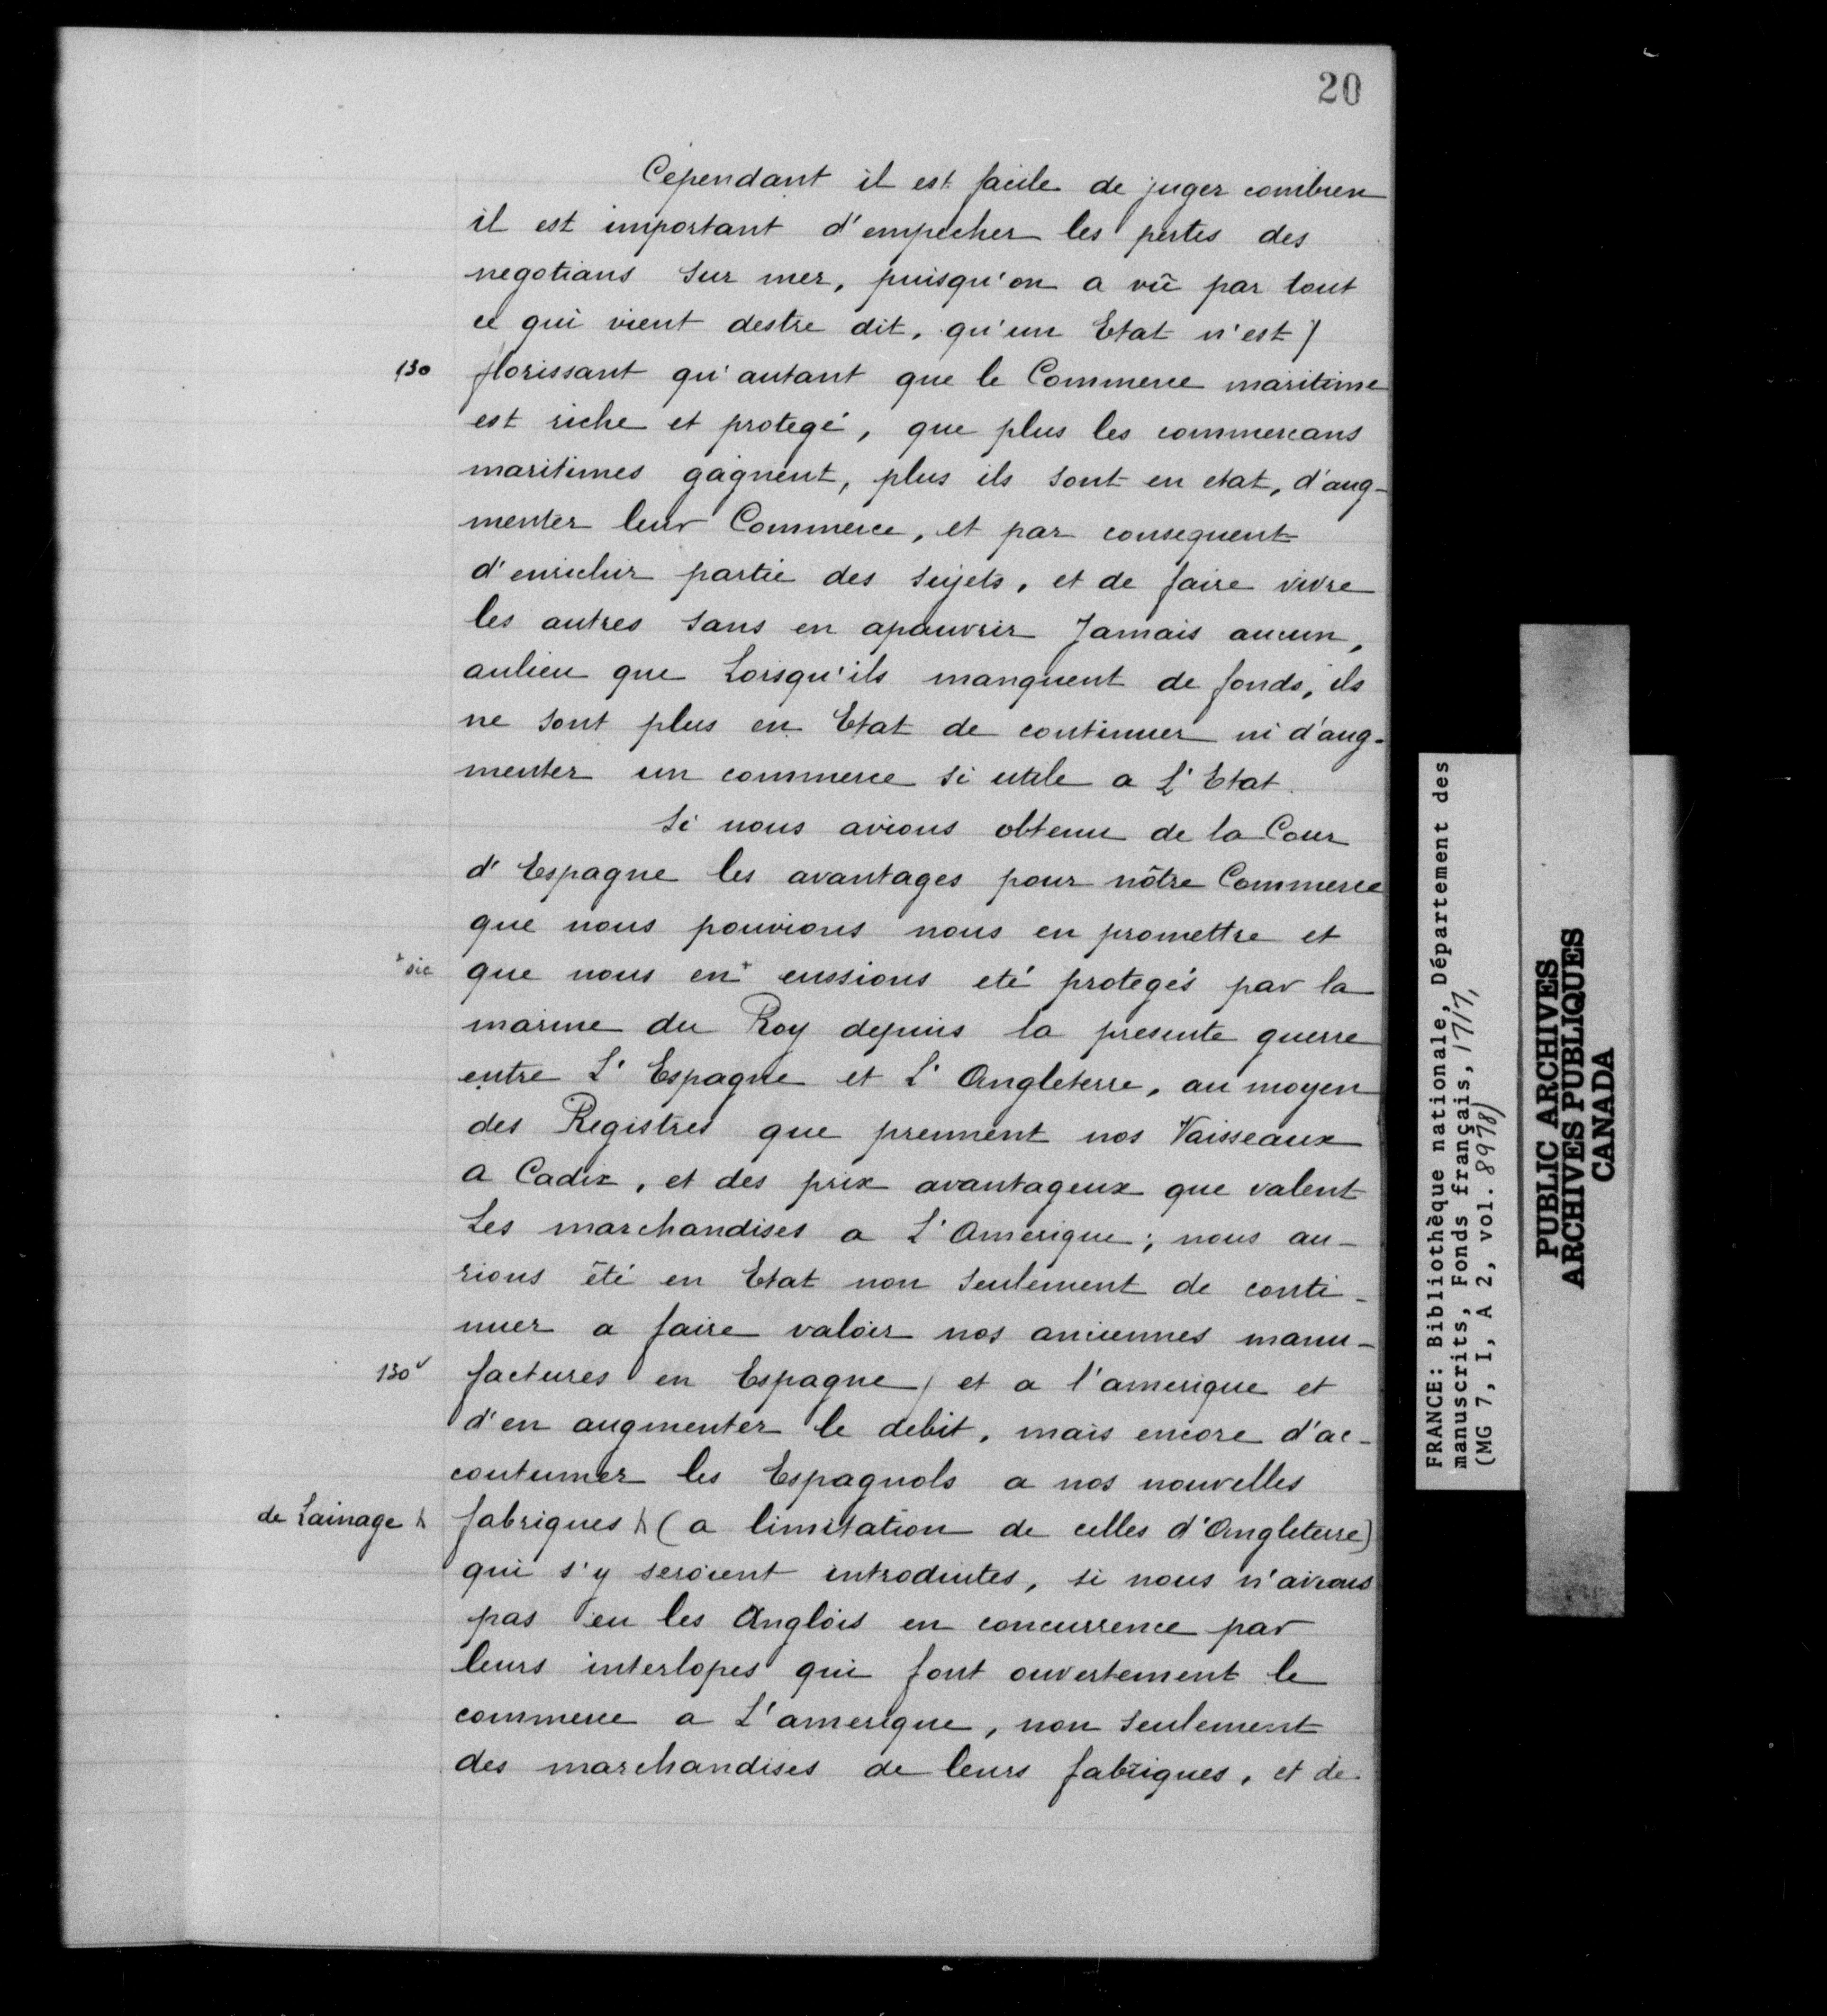 20
Cependant il est facile de juger combien
il est important d'empecher les pertes des
negotians sur mer, puisqu'on a vû par tout
ce qui vient destre dit, qu'un Etat n'est /
130 florissant qu'autant que le Commerce maritime
est riche et protegé, que plus les commercans
maritimes gagnent, plus ils sont en etat, d'aug-
menter leur Commerce, et par consequent
d'enrichir partie des sujets, et de faire vivre
les autres sans en apauvrir Jamais aucun,
aulieu que Lorsqu'ils manquent de fonds, ils
ne sont plus en Etat de continuer ni d'aug-
menter un commerce si utile a L'Etat.
Si nous avions obtenu de la Cour
d'Espagne les avantages pour nôtre Commerce
que nous pouvions nous en promettre et
+ sic que nous en + eussions eté protegés par la
marine du Roy depuis la presente guerre
entre L'Espagne et L'Angleterre, au moyen
des Registres que prennent nos Vaisseaux
a Cadix, et des prix avantageux que valent
Les marchandises a L'Amerique; nous au-
rions êté en Etat non seulement de conti-
nuer a faire valoir nos anciennes manu-
130v factures en Espagne / et a l'amerique et
d'en augmenter le debit, mais encore d'ac-
coutumer les Espagnols a nos nouvelles
de Lainage fabriques (a limitation de celles d'Angleterre)
qui s'y seroient introduites, si nous n'avions
pas eu les Anglois en concurrence par
leurs interlopes qui font ouvertement le
commerce a L'amerique, non seulement
des marchandises de leurs fabriques, et de
FRANCE: Bibliothèque nationale, Département des
manuscrits, Fonds français, 1717,
(MG 7, I, A 2, vol. 8978)
PUBLIC ARCHIVES
ARCHIVES PUBLIQUES
CANADA